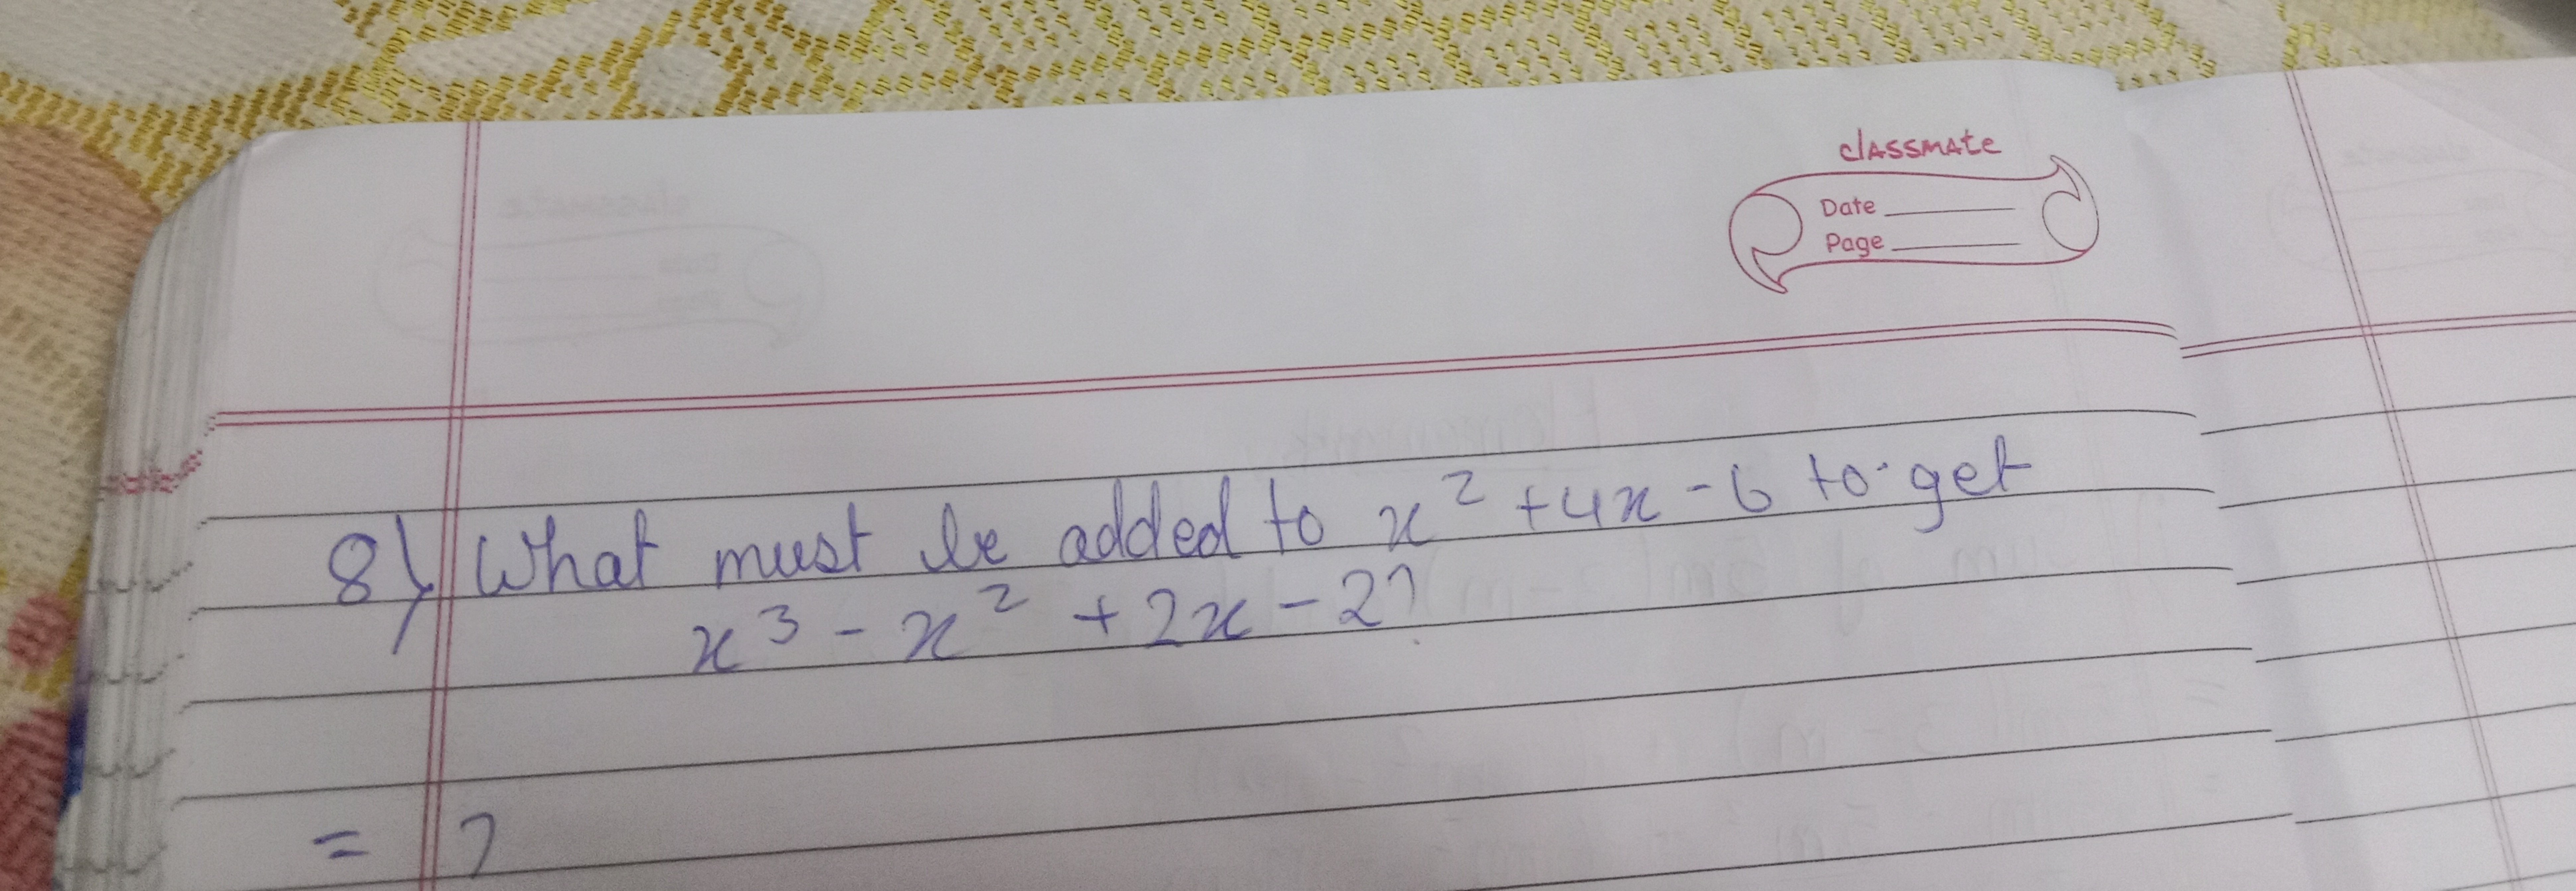 classmate
Date
Page
8) What must be added to x² + 4x - 6 to get
x³ - x² + 2x - 2?
= ?